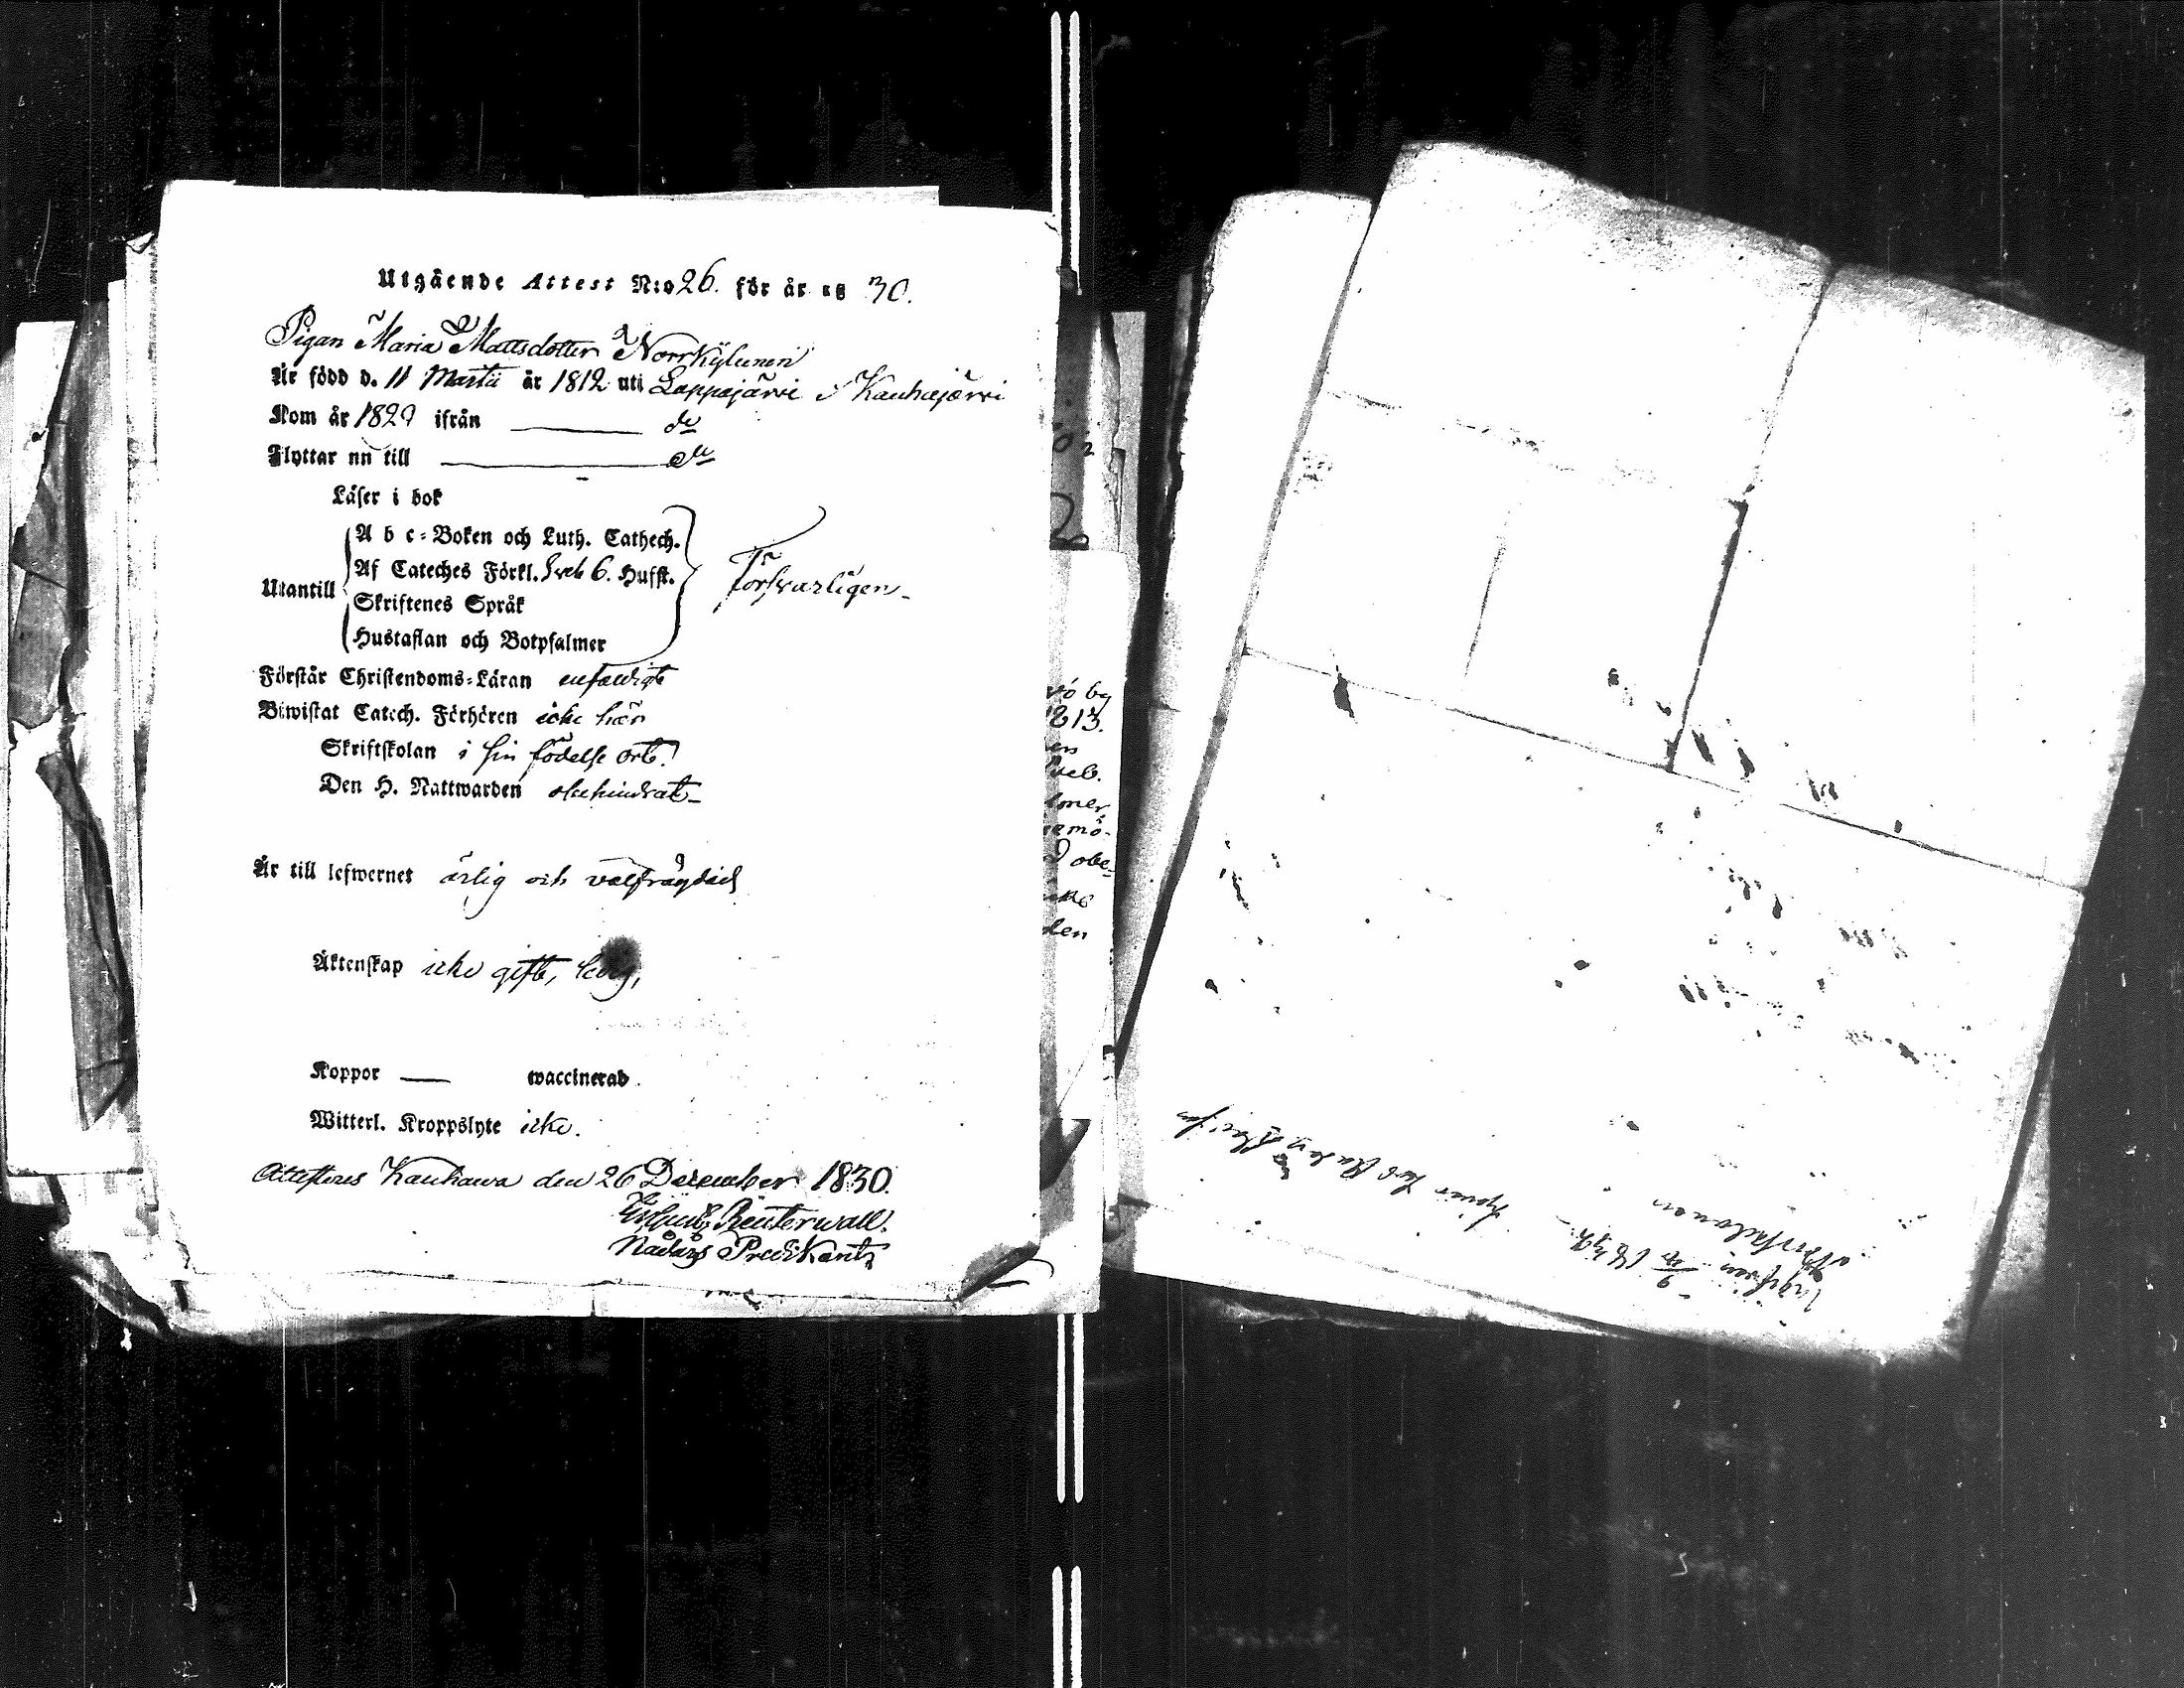 Utgående Attest N:o 26. för år 18 30.
Pigan Maria Mattsdotter Norrkylunen
Är född d. 11 Martii år 1812 uti Lappajärvi & Kauhajärvi
Kom år 1829 ifrån — do
Flyttar nu till — do
Läser i bok
A b c-Boken och Luth. Cathech.
Af Cateches Förkl. Sveb 6. Hufst.
Utantill
Försvarligen
Skriftenes Språk
Hustaflan och Botpsalmer
Förstår Christendoms-Läran enfaldigt
Biwistat Catech. Förhören icke här
Skriftskolan i sin födelse ort.
Den H. Nattwarden obehindrat
Är till lefwernet ärlig och välfrägdad
Äktenskap icke gift, ledig,
Koppor — waccinerad.
Witterl. Kroppslyte icke.
Attesteras Kauhawa den 26 December 1830.
Reuterwall.
Nådårs Predikant
vö by
1813.
en
Sveb.
lmer,
emö-
den